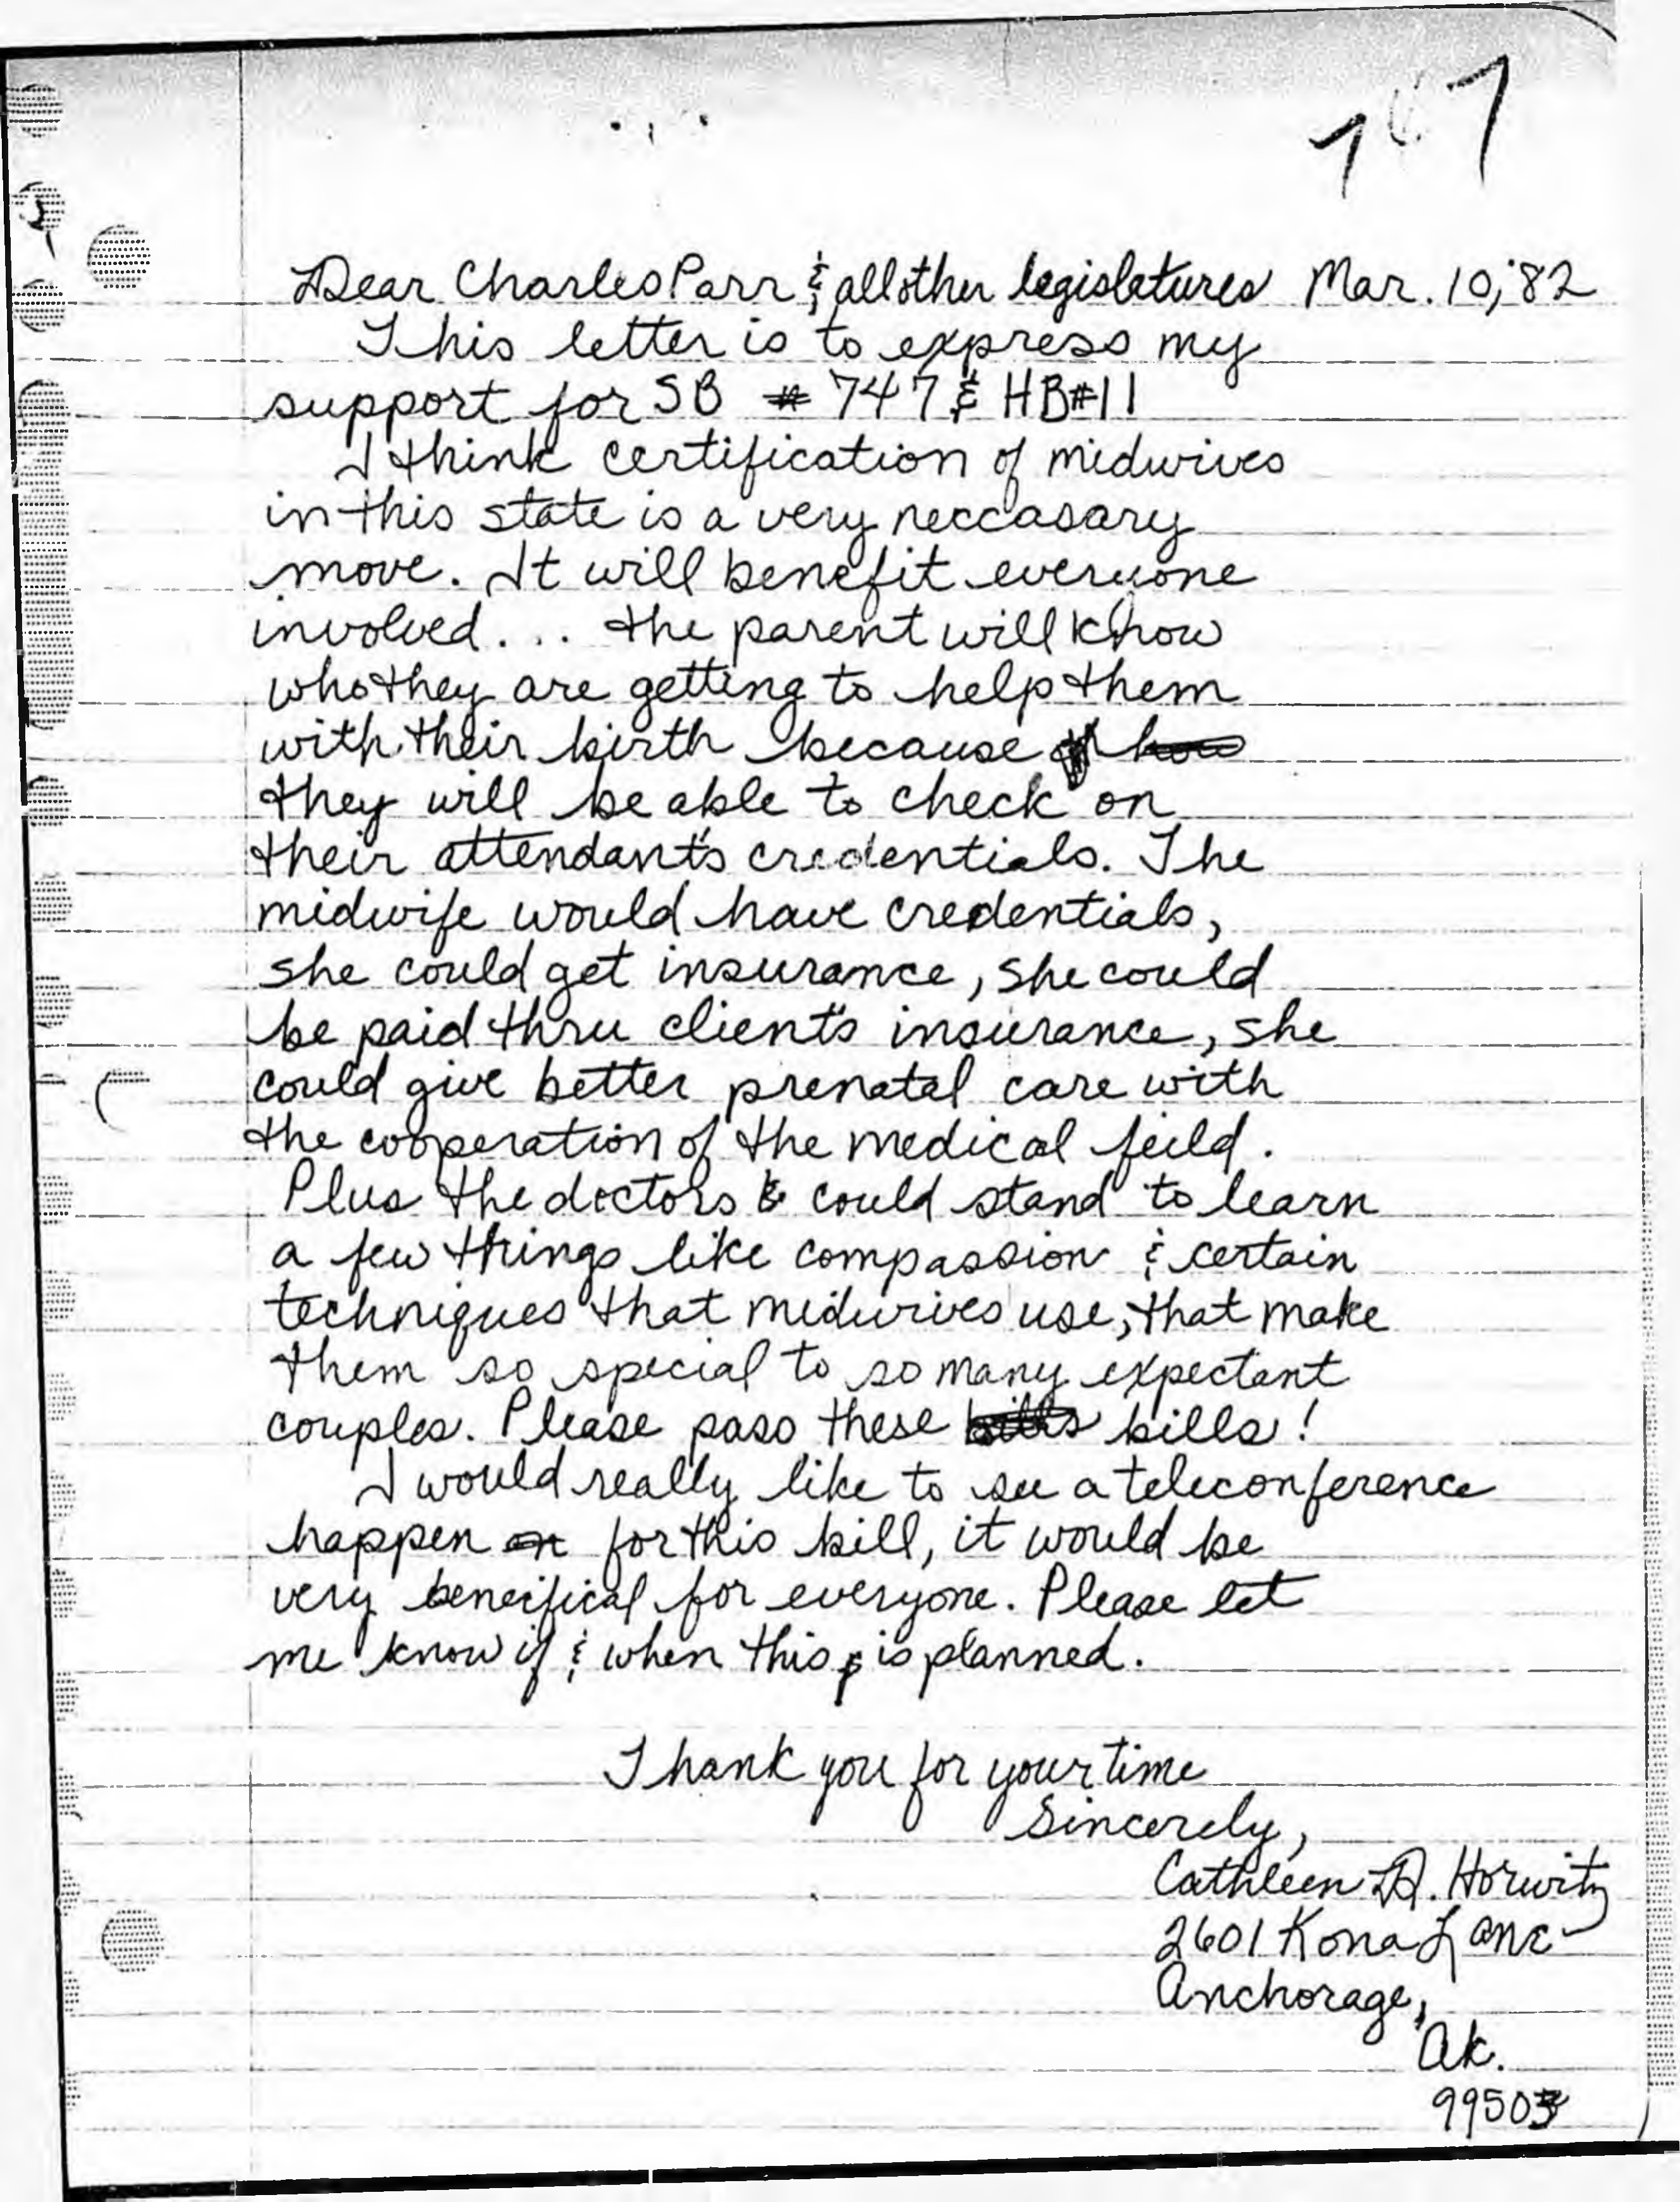 Dear Charles Parr & all other legislatures Mar. 10, '82
This letter is to express my
support for SB # 747 & HB#11
I think certification of midwives
in this state is a very neccasary
move. It will benefit everyone
involved... the parent will know
who they are getting to help them
with their birth because how
they will be able to check on
their attendant's credentials. The
midwife would have credentials,
she could get insurance, she could
be paid thru client's insurance, she
could give better prenatal care with
the cooperation of the medical feild.
Plus the doctors could stand to learn
a few things like compassion & certain
techniques that midwives use, that make
them so special to so many expectant
couples. Please pass these bills bills!
I would really like to see a teleconference
happen on for this bill, it would be
very beneifical for everyone. Please let
me know if & when this is planned.
Thank you for your time
Sincerely,
Cathleen D. Horwitz
2601 Kona Lane
Anchorage,
Ak.
99503